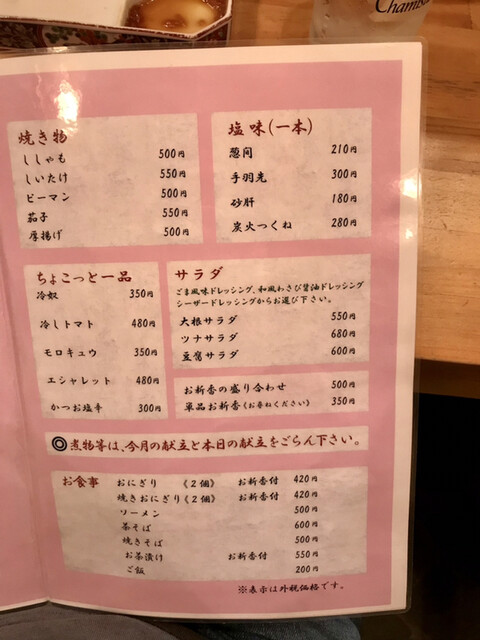 Chamisul
焼き物
ししゃも 500円
しいたけ 550円
ピーマン 500円
茄子 550円
厚揚げ 500円
塩味(一本)
葱间 210円
手羽先 300円
砂肝 180円
炭火つくね 280円
ちょこっと一品
冷奴 350円
冷しトマト 480円
モロキュウ 350円
エシャレット 480円
かつお塩辛 300円
サラダ
ごま風味ドレッシング、和風わさび醤油ドレッシング
シーザードレッシングからお選び下さい。
大根サラダ 550円
ツナサラダ 680円
豆腐サラダ 600円
お新香の盛り合わせ 500円
単品お新香《お尋ねください》 350円
◎煮物等は、今月の献立と本日の献立をごらん下さい。
お食事
おにぎり 《2個》 お新香付 420円
焼きおにぎり《2個》 お新香付 420円
ソーメン 500円
茶そば 600円
焼きそば 500円
お茶漬け お新香付 550円
ご飯 200円
※表示は外税価格です。